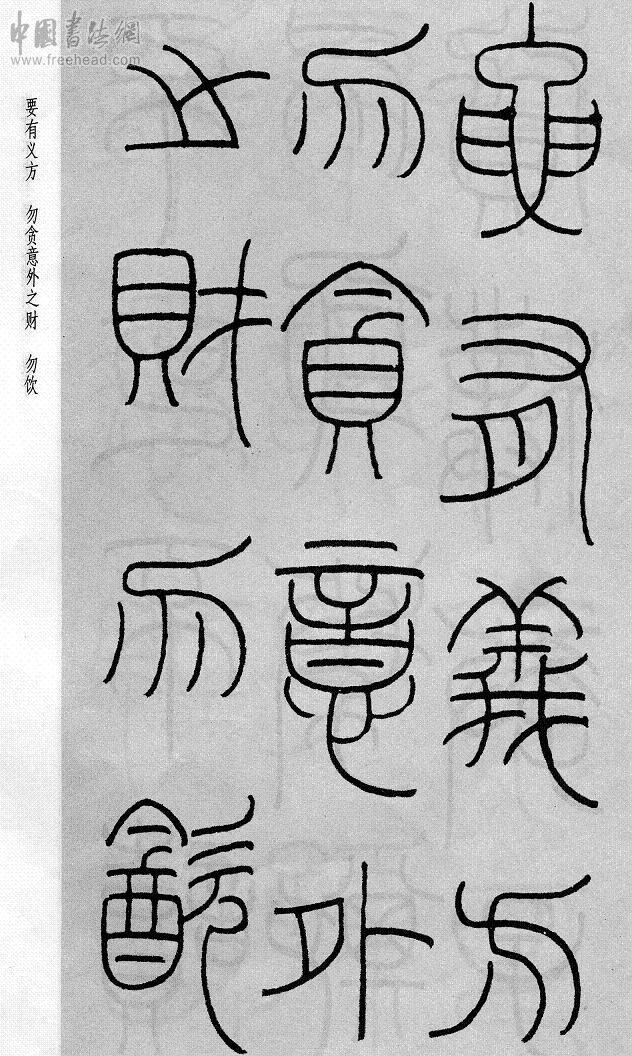 中国书法网
www.freehead.com
要有义方 勿贪意外之财 勿饮
要有義方
勿貪意外
之財勿㱃